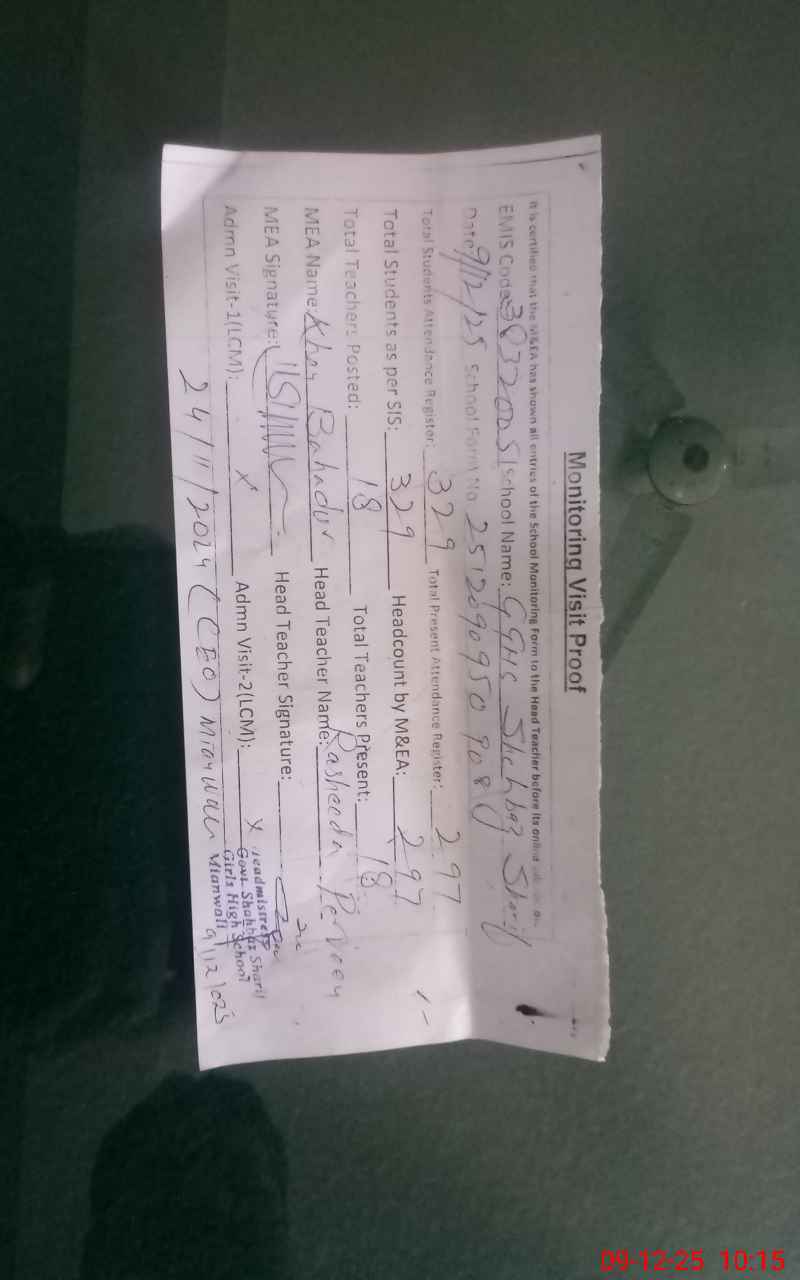 Monitoring Visit Proof
It is certified that the M&EA has shown all entries of the School Monitoring Form to the Head Teacher before its online
EMIS Code: 38320051 School Name: GGHS Shehbaz Sharif
Date 9/12/25 School Form No 25120909509080
Total Students Attendance Register: 329 Total Present Attendance Register: 297
Total Students as per SIS: 329 Headcount by M&EA: 297
Total Teachers Posted: 18 Total Teachers Present: 18
MEA Name: Kher Bahadur Head Teacher Name: Rasheeda Perveen
MEA Signature: Head Teacher Signature:
Admn Visit-1(LCM): X Admn Visit-2(LCM): X
Headmistress
Govt. Shahbaz Sharif
Girls High School
Mianwali
24/11/2024 (CEO) Mianwali 9/12/025
09-12-25 10:15